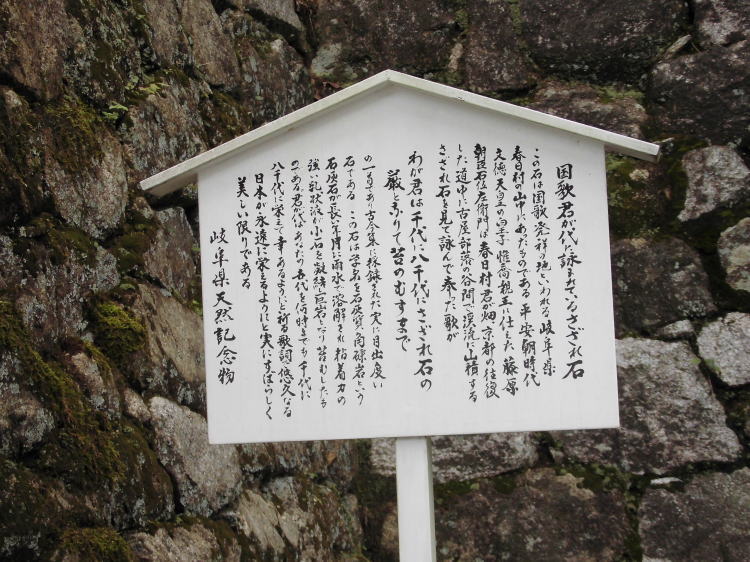 国歌君が代に詠まれているさざれ石
この石は国歌発祥の地といわれる岐阜県
春日村の山中にあったものである 平安朝時代
文徳天皇の皇子 惟喬親王に仕えた 藤原
朝臣石位左衛門は 春日村君が畑 京都の往復
した道中に古屋部落の谷間 渓流に山積する
さざれ石を見て詠んで奉った歌が
わが君は千代に八千代にさざれ石の
巌となりて苔のむすまで
の一首であり古今集に採録された実に目出度い
石である この石は学名を石灰質角礫岩という
石灰石が長い年月に雨水で溶解され 粘着力の
強い乳状液が小石を凝結し巨岩となり苔むしたも
のである 君代はあなたの五代を何時までも千代に
八千代に栄えて幸あるようにと祈る歌詞で悠久なる
日本が永遠に栄えるようにと実にすばらしく
美しい限りである
岐阜県天然記念物